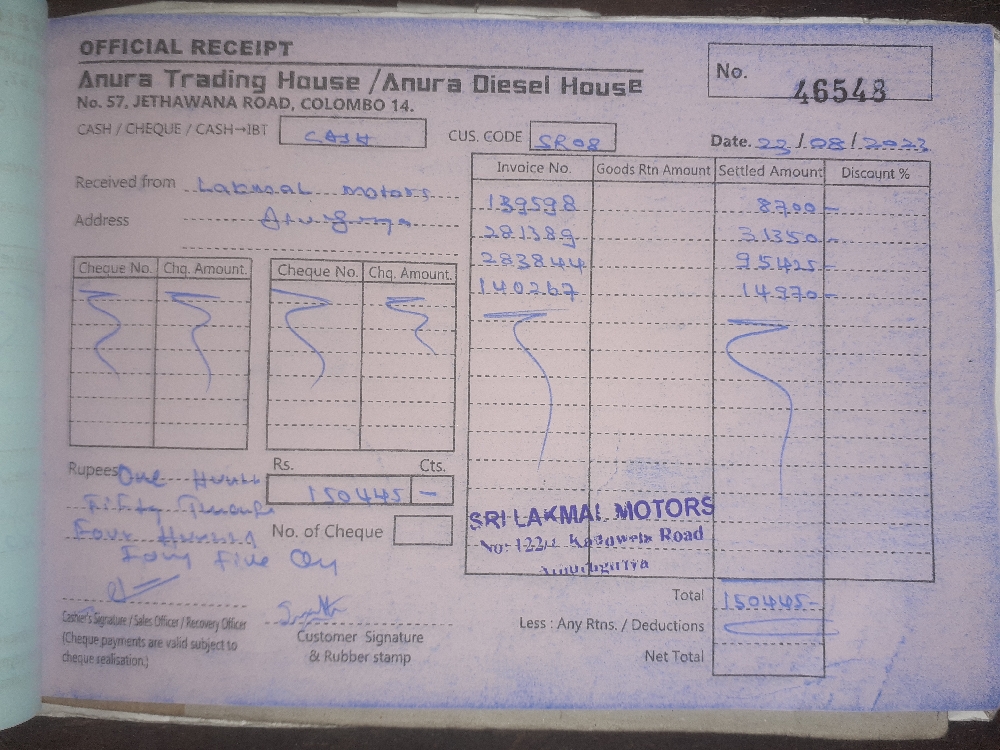 OFFICIAL RECEIPT
Anura Trading House /Anura Diesel House
No. 57, JETHAWANA ROAD, COLOMBO 14.
No. 46548
CASH / CHEQUE / CASH→IBT CASH
CUS. CODE SR08
Date. 23/08/2023
Received from Lakmal Motors
Address
Invoice No. Goods Rtn Amount Settled Amount Discount %
139598 8700-
281389 31350-
283844 95425-
140267 14970-
Cheque No. Chq. Amount. Cheque No. Chq. Amount.
Rupees One Hundred
Fifty Thousand
Four Hundred
Forty Five Only
Rs. Cts.
150445 -
No. of Cheque
SRI LAKMAL MOTORS
No: 122/ Kaduwela Road
Total 150445-
Less : Any Rtns. / Deductions
Net Total
Cashier's Signature / Sales Officer / Recovery Officer
(Cheque payments are valid subject to
cheque realisation.)
Customer Signature
& Rubber stamp